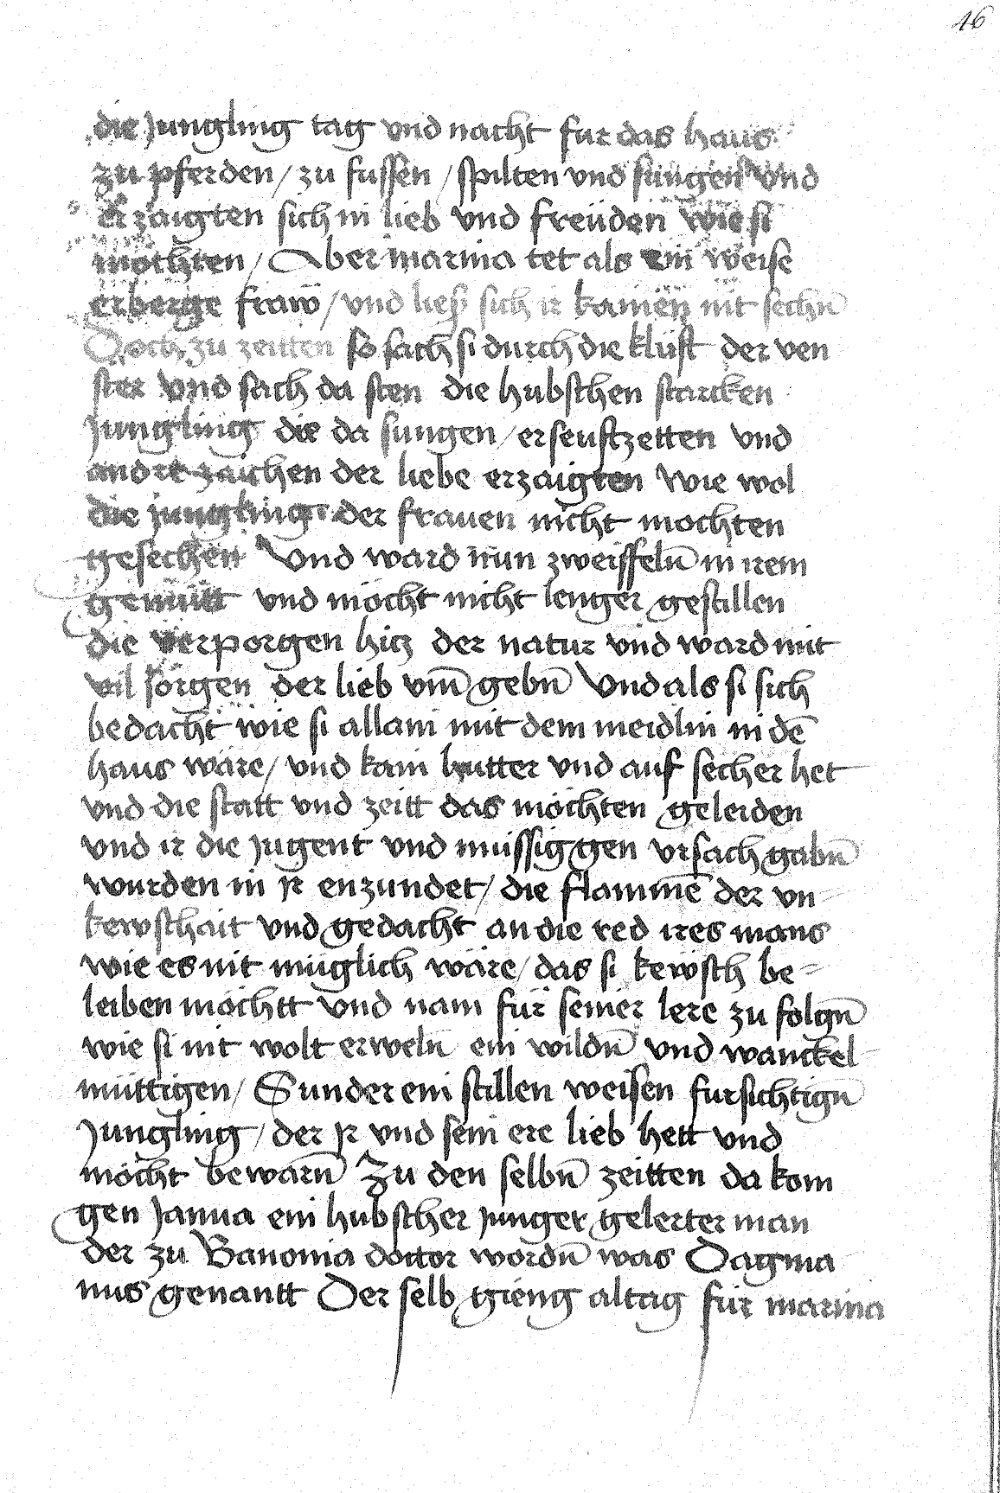 46
die Jungling tag vnd nacht fur das haus
zu pferden / zu fussen / spilten vnd sungen vnd
erzaigten sich in lieb vnd freüden wie si
mochten / Aber marina tet als ein weise
erberge fraẅ / vnd lieſz sich ir kainen nit sechn̄
Doch zu zeitten so sach si durch die klüft der ven
ster vnd sach da sten die hubschen starcken
Jungling die da sungen / erseuftzetten vnd
andre zaichen der liebe erzaigten Wie wol
die jungling der frauen nicht mochten
gesechen Vnd ward nün zweiffeln̄ in irem
gemütt vnd mocht nicht lenger gestillen
die verporgen hitz der natur vnd ward mit
vil sorgen der lieb vm̄ gebn̄ Vnd als si sich
bedacht wie si allain mit dem meidlin in dē
haus wäre / vnd kain hutter vnd auf secher het
vnd die statt vnd zeitt das möchten geleiden
vnd ir die jugent vnd müssiggen vrsach gabn̄
wurden in jr enzundet / die flammē der vn=
kewschait vnd gedacht an die red ires mans
wie es nit müglich wäre / das si kewsch be=
leiben möchtt vnd nam für seiner lere zu folgn̄
wie si nit wolt erweln̄ ein wildn̄ vnd wanckel=
müttigen / Sunder ein stillen weisen fursichtign̄
Jungling / der jr vnd sein ere lieb hett vnd
möcht bewarn̄ Zu den selbn̄ zeitten da kom
gen Janua ein hubscher junger gelerter man
der zu Banonia dottor wordn̄ was Dagma
nus genantt Der selb gieng altag für marina